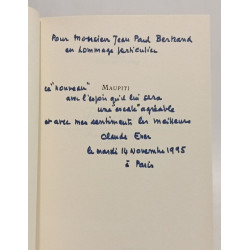 Pour Monsieur Jean Paul Bertrand
en hommage particulier
ce "nouveau" MAUPITI
avec l'espoir qu'il lui sera
une escale agréable
et avec mes sentiments les meilleurs
Claude
le mardi 14 Novembre 1995
à Paris